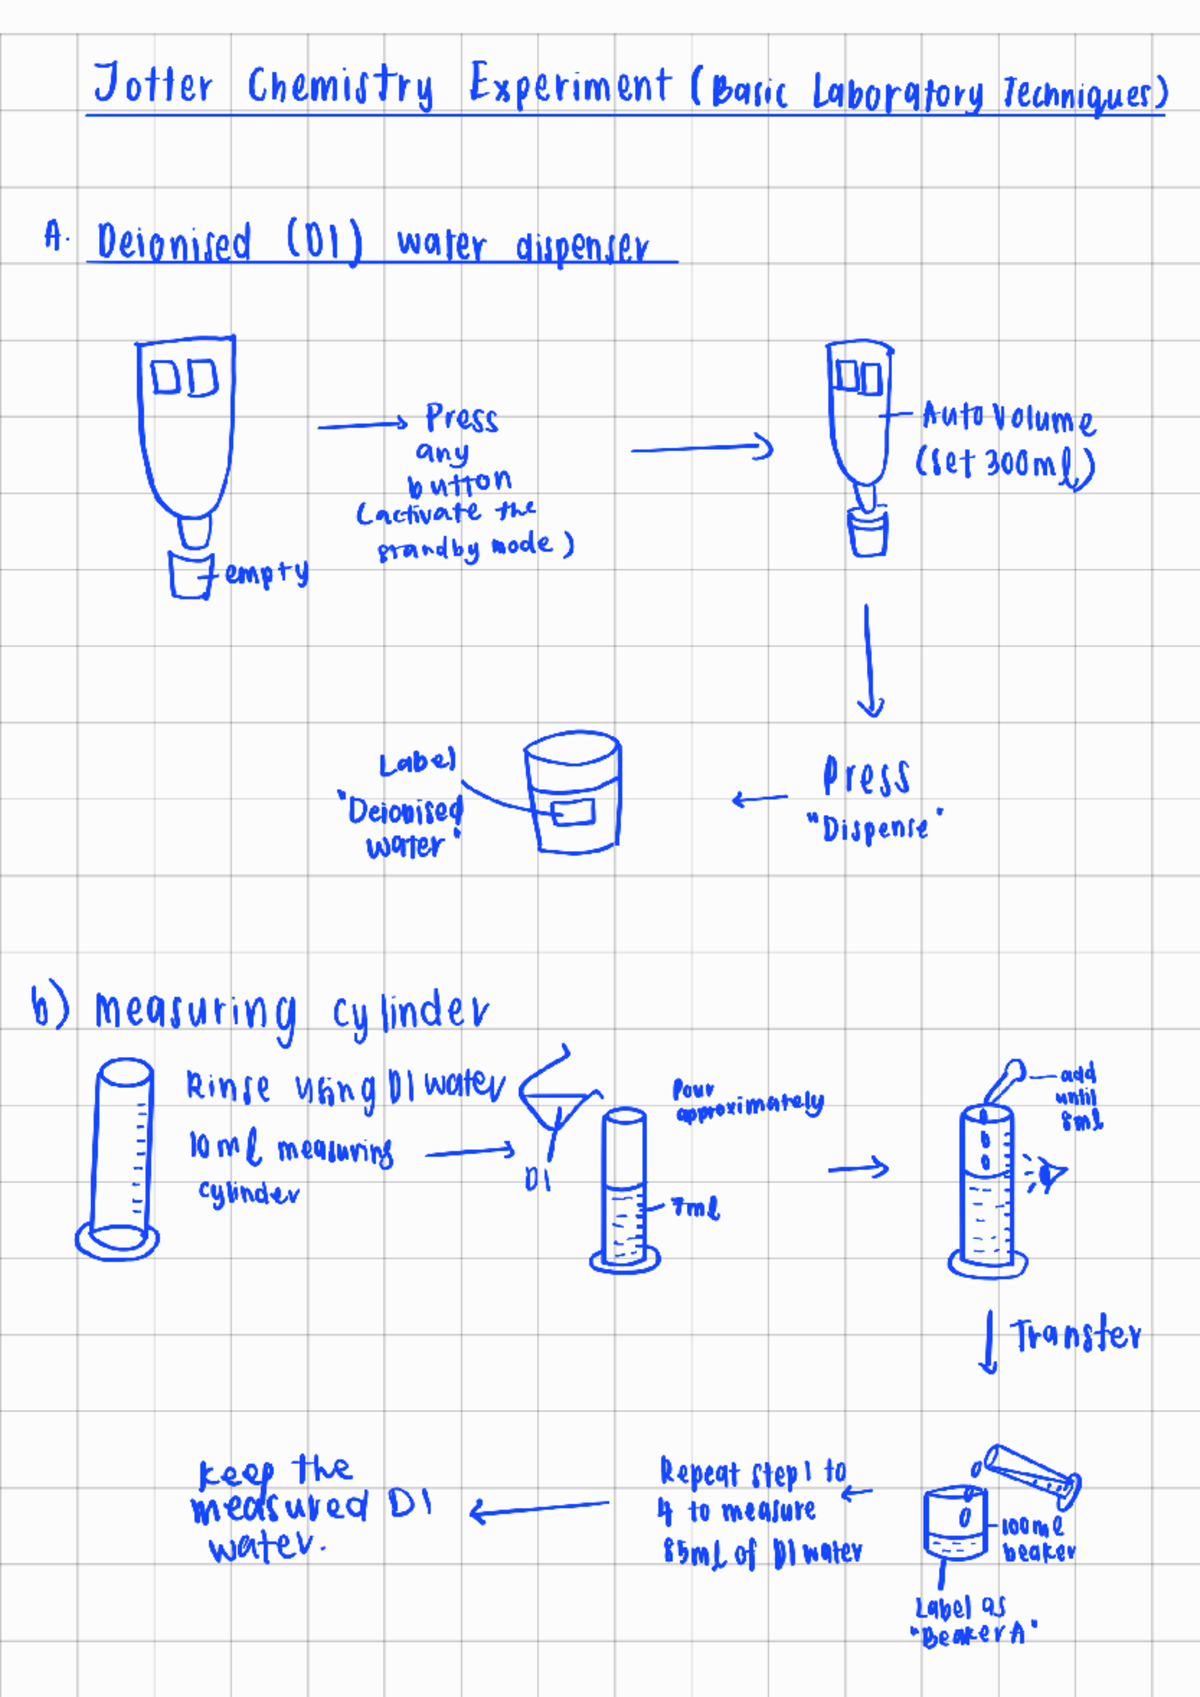 Jotter Chemistry Experiment (Basic Laboratory Techniques)
A. Deionised (DI) water dispenser
empty
Press
any
button
(activate the
standby mode)
Auto Volume
(set 300ml)
Press
"Dispense"
Label
"Deionised
water"
b) measuring cylinder
Rinse using DI water
10ml measuring
cylinder
DI
Pour
approximately
7ml
add
until
8ml
Transfer
100ml
beaker
Label as
"Beaker A"
Repeat step 1 to
4 to measure
85ml of DI water
keep the
measured DI
water.